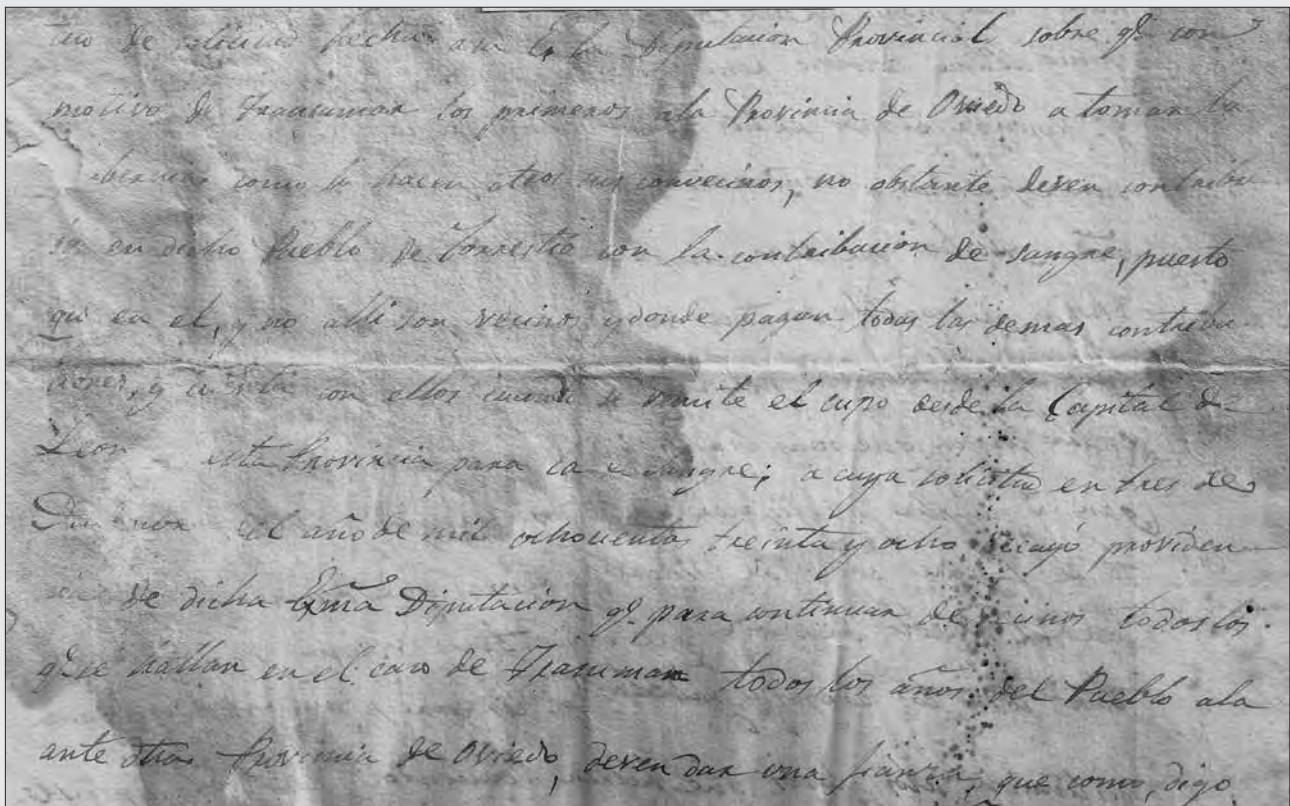 de hecha Diputacion Provincial sobre qe. con
motivo de trasumar los primeros ala Provincia de Oviedo a tomar la
como lo hacen otros sus convecinos, no obstante deven contribu
ir en dicho Pueblo de Torrestio con la contribucion de sangre, puesto
qe. en el, y no alli son vecinos y donde pagan todas las demas contribu
ciones, y cuenta con ellos cuando se remite el cupo desde la Capital de
Leon esta Provincia para sangre; a cuya solicitud en tres de
del año de mil ochocientos treinta y ocho recayó providen
cia de dicha Exma Diputacion qe. para continuar de vecinos todos los
qe. se hallan en el caso de trasumar todos los años del Pueblo ala
ante dha Provincia de Oviedo, deven dar una fianza, que como, digo